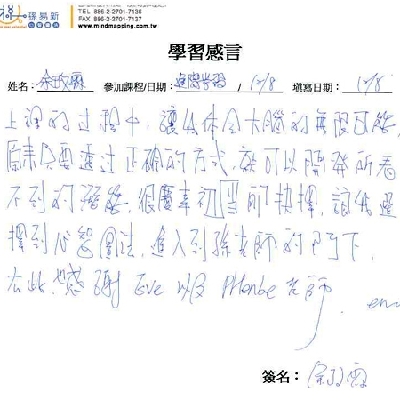 碟易新
TEL 886-2-2701-7136
FAX 886-2-2701-7137
www.mindmapping.com.tw
學習感言
姓名: 參加課程/日期: / 12/8 填寫日期: 12/8
上課的過程中,讓我体会大腦的無限可能,
原來只要透過正確的方式,就可以開發所看
不到的潛能,很慶幸初当前抉擇,讓我選
擇到心智圖法,進入到孫老師的門下,
在此感謝 Eve 以及 Phoebe 老師. end
簽名: